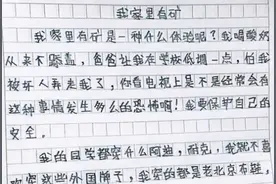 我家里有矿
我家里有矿是一种什么体验呢？我喝酸奶
从来不舔盖，爸爸让我在学校低调一点，怕我
被坏人弄走我了，你看电视上是不是经常会有
这种事情发生多么的恐怖啊！我要保护自己的
安全。
我的同学都穿什么阿迪，耐克，我就不喜
欢穿这些外国牌子，我穿的都是老北京布鞋，